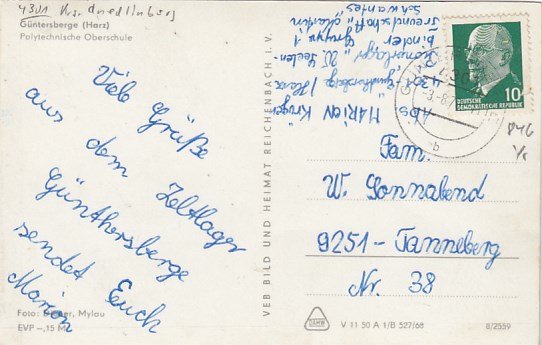 4301 Krs. Quedlinburg
Güntersberge (Harz)
Polytechnische Oberschule
Viele Grüße
aus dem Zeltlager
Günthersberge
sendet Euch
Marion
Foto: Mylau
EVP –,15 M
VEB BILD UND HEIMAT REICHENBACH I. V.
Abs. Marion Krüger
4301 Günthersberge/Harz
"W. Seelen-
binder" Gruppe 1
Freundschaft
10
DEUTSCHE
DEMOKRATISCHE REPUBLIK
Fam.
W. Sonnabend
9251-Tanneberg
Nr. 38
V 11 50 A 1/B 527/68
8/2559